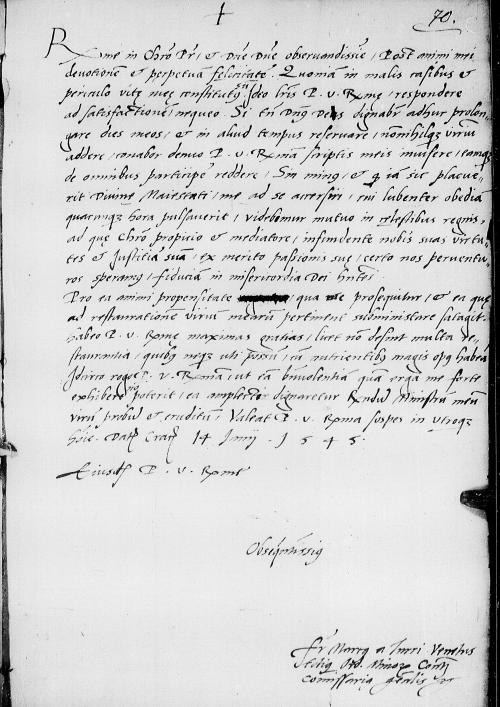 70.
Rme in Chro Pr, et Dne Dne observandissie, Post animi mei
devotionē et perpetuā felicitatē. Quoniā in malis casibus et
periculo vitę meę constitutus, ideo lris P. v. Rme, respondere
ad satisfactionē nequeo. Si tn Dnus Deus dignabr adhuc prolon
gare dies meos, et in aliud tempus reservare, nonnihilq; virium
addere, conabor denuo P. v. Rmā scriptis meis invisere, eamq;
de omnibus participē reddere, Sin minq, et q iā sic placue
rit Divinę Maiestati, me ad se accersiri, cui lubenter obediā
quacunq; hora pulsaverit, videbimur mutuo in cęlestibus regnis,
ad que Chro propicio et mediatore, infundente nobis suas virtu
tes et Justitiā suā, ex merito passionis sue, certo nos perventu
ros speramq, fiduciā in misericordia Dei hntes.
Pro ea animi propensitate qua me prosequitur, et ea que
ad restaurationē viriū mearū pertinent subministrare satagit
habeo P. v. Rme maximas gratias, licet nō desint multa re
staurantia, quibq neq; uti possū, cū nutrientibq magis opq habeā
Idcirco rogo P. v. Rmā, ut eā binvolentiā quā erga me forte
exhibere nō poterit, eā amplecti dignaretur Rndū Ministrū meū
virū probū et eruditū, Valeat P. v. Rma sospes in utroq;
hoie. Datę Cracę 14 Junij . 1545.
Eiusdē P. v. Rme
Obseqntissiq
Fr Marcq a Venetus
Ord. Minorū Convē
comissariq gnalis